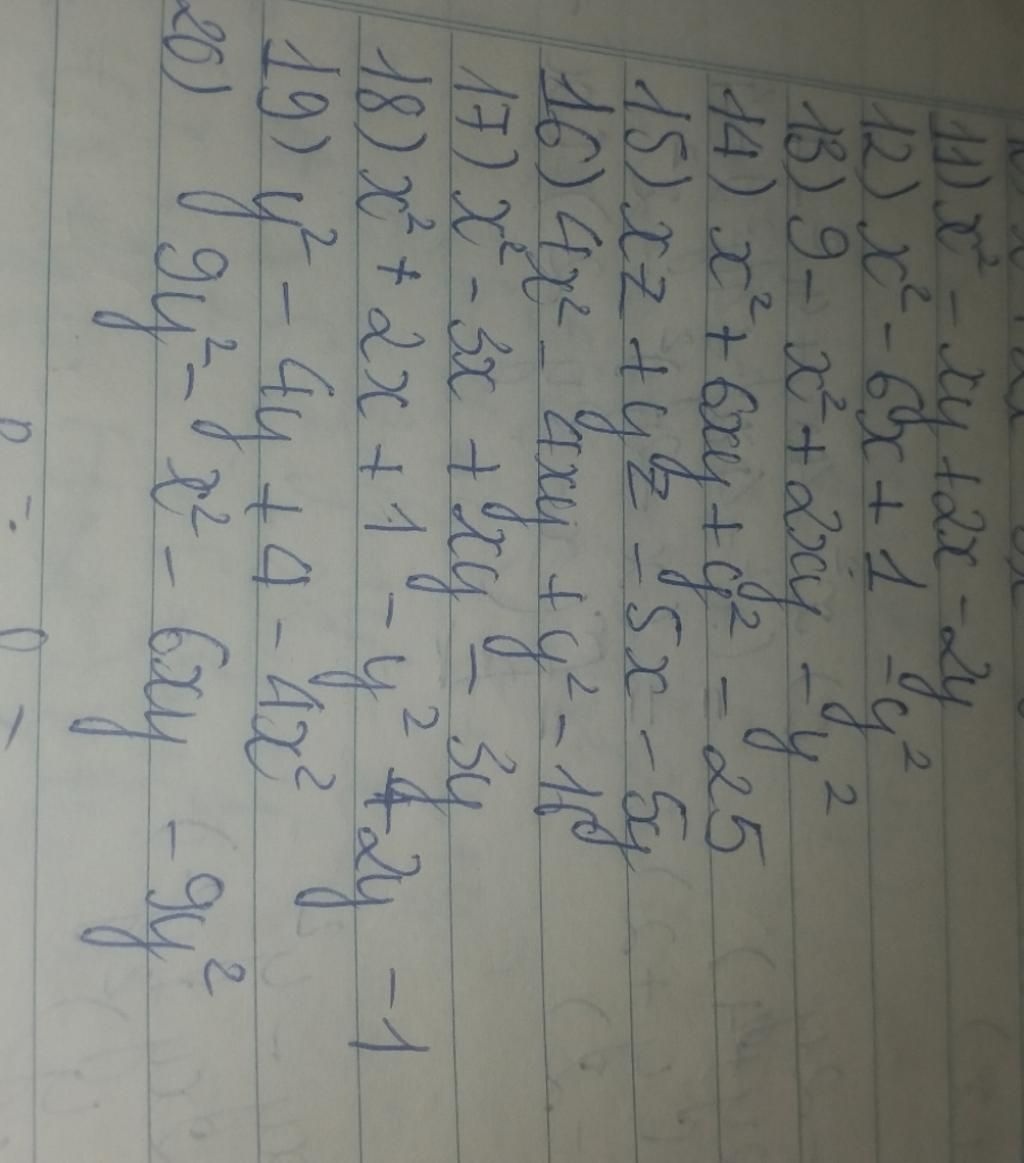 11) x² - xy + 2x - 2y
12) x² - 6x + 1 - y²
13) 9 - x² + 2xy - y²
14) x² + 6xy + y² - 25
15) xz + yz - 5x - 5y
16) 4x² - 4xy + y² - 16
17) x² - 3x + xy - 3y
18) x² + 2x + 1 - y² + 2y - 1
19) y² - 4y + 4 - 4x²
20) y 9y² - x² - 6xy - 9y²